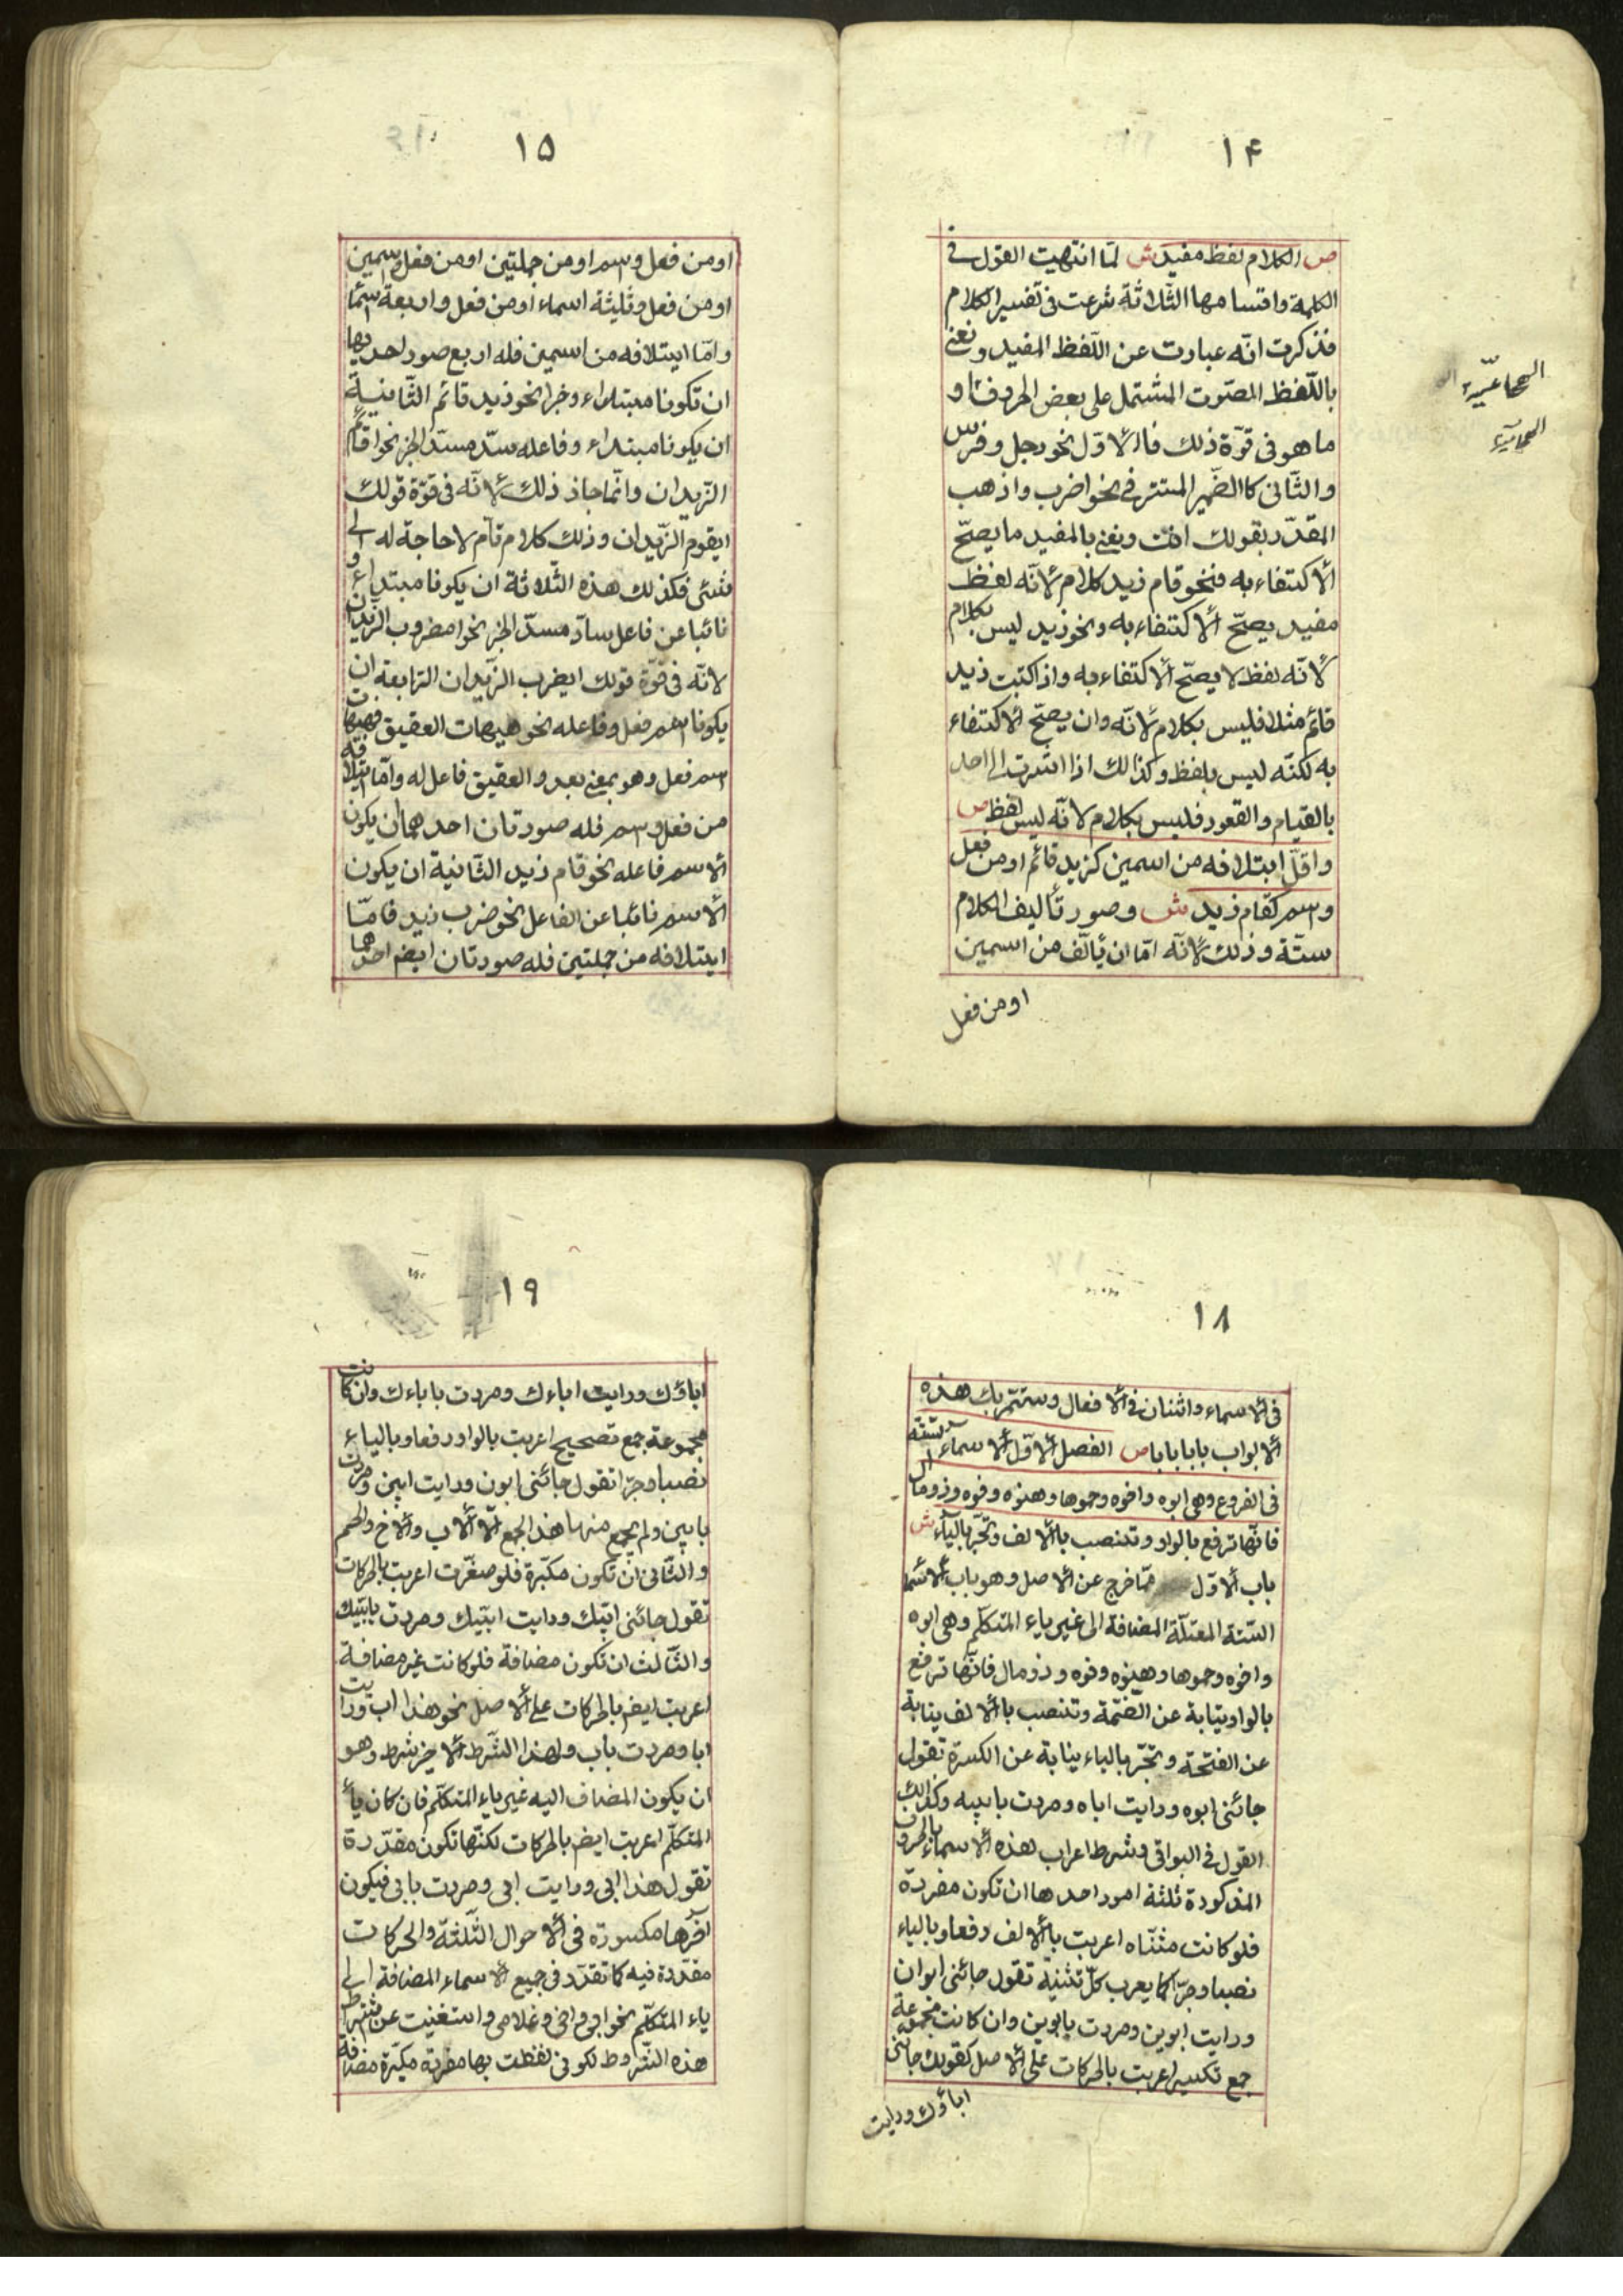 ١۴
ص الكلام لفظ مفيد ش لمّا انتهيت القول فى
الكلمة واقسامها الثّلاثة شرعت فى تفسير الكلام
فذكرت انّه عبارت عن اللّفظ المفيد ونعنى
باللّفظ المصّوت المشتمل على بعض الحروف او
ما هو فى قوّة ذلك فاالأوّل نحو رجل وفرس
والثّانى كاالضّمير المستتر فى نحو اضرب واذهب
المقدّر بقولك انت ونعنى بالمفيد ما يصحّ
ألاكتفاء به فنحو قام زيد كلام لأنّه لفظ
مفيد يصحّ ألاكتفاء به ونحو زيد ليس بكلام
لأنّه لفظ لا يصحّ ألاكتفاء به واذا كتبت زيد
قائم مثلا فليس بكلام لأنّه وان يصحّ ألاكتفاء
به لكنّه ليس بلفظ وكذالك اذا اشرت الى احد
بالقيام والقعود فليس بكلام لانّه ليس لفظ ص
واقلّ ايتلافه من اسمين كزيد قائم او من فعل
واسم كقام زيد ش وصور تأليف الكلام
ستّة وذلك لأنّه امّا ان يألّف من اسمين
او من فعل
السماعيّة
السمائيّة
١۵
او من فعل واسم او من جملتين او من فعل واسمين
او من فعل وثليثة اسماء او من فعل واربعة اسما
وامّا ايتلافه من اسمين فله اربع صور احديها
ان تكونا مبتداء وخبرا نحو زيد قائم الثّانية
ان يكونا مبتداء وفاعله سدّ مسدّ الخبر نحو اقائم
الزّيدان وانّما جاز ذلك لأنّه فى قوّة قولك
ايقوم الزّيدان وذلك كلام تام لا حاجة له الى
شئى فكذلك هذه الثّلاثة ان يكونا مبتداء و
نائبا عن فاعل سادّ مسدّ الخبر نحو امضروب الزّيدان
لانّه فى قوّة قولك ايضرب الزّيدان الرّابعة ان
يكونا اسم فعل وفاعله نحو هيهات العقيق فهيهات
اسم فعل وهو بمعنى بعد والعقيق فاعل له وامّا ايتلافه
من فعل واسم فله صورتان احدهما ان يكون
ألاسم فاعله نحو قام زيد الثّانية ان يكون
ألاسم نائبا عن الفاعل نحو ضرب زيد فامّا
ايتلافه من جملتين فله صورتان ايضم احدهما
١٨
فى ألاسماء واثنان فى ألافعال وستتمّر بك هذه
ألابواب بابا بابا ص الفصل ألاوّل ألاسماء الستّة
فى الفروع وهى ابوه واخوه وحموها وهنوه وفوه وذومال
فانّها ترفع بالواو وتنصب باألالف وتجّر بالياء ش
باب ألاوّل ممّا خرج عن ألاصل وهو باب ألاسما
الستّة المعتلّة المضافة الى غير ياء المتكلّم وهى ابوه
واخوه وحموها وهنوه وفوه وذومال فانّها ترفع
بالواو نيابة عن الضّمة وتنصب باألالف نيابة
عن الفتحة وتجّر بالياء نيابة عن الكسرة تقول
جائنى ابوه ورايت اباه ومررت بابيه وكذالك
القول فى البواقى وشرط اعراب هذه ألاسماء بالحروف
المذكورة ثلثة امور احدها ان تكون مفردة
فلو كانت مثنّاه اعربت باألالف رفعا وبالياء
نصبا وجرّا كما يعرب كلّ تثنية تقول جائنى ابوان
ورايت ابوين ومررت بابوين وان كانت مجموعة
جمع تكسير اعربت بالحركات على ألاصل كقولك جائنى
اباؤك ورايت
١٩
اباؤك ورايت اباءك ومررت باباءك وان كانت
مجموعة جمع تصحيح اعربت بالواو رفعا وبالياء
نصبا وجرّا تقول جائنى ابون ورايت ابين ومررت
بابين ولم يجمع منها هذا الجمع الّا ألاب وألاخ والحم
والثّانى ان تكون مكبّرة فلو صغّرت اعربت بالحركات
تقول جائنى ابيّك ورايت ابيّك ومررت بابيّك
والثّالث ان تكون مضافة فلو كانت غير مضافة
اعربت ايضم بالحركات على ألاصل نحو هذا اب ورايت
ابا ومررت باب ولهذا الشّرط ألاخر شرط وهو
ان يكون المضاف اليه غير ياء المتكلّم فان كان يأ
المتكلّم اعربت ايضم بالحركات لكنّها تكون مقدّرة
تقول هذا ابى ورايت ابى ومررت بابى فيكون
آخرها مكسورة فى ألاحوال الثّلثة والحركات
مقدّرة فيه كما تقدّر فى جميع ألاسماء المضافة الى
ياء المتكلّم نحو ابى واخى وغلامى واستغنيت عن اشتراط
هذه الشّروط لكونى لفظت بها مفردة مكبّرة مضافة